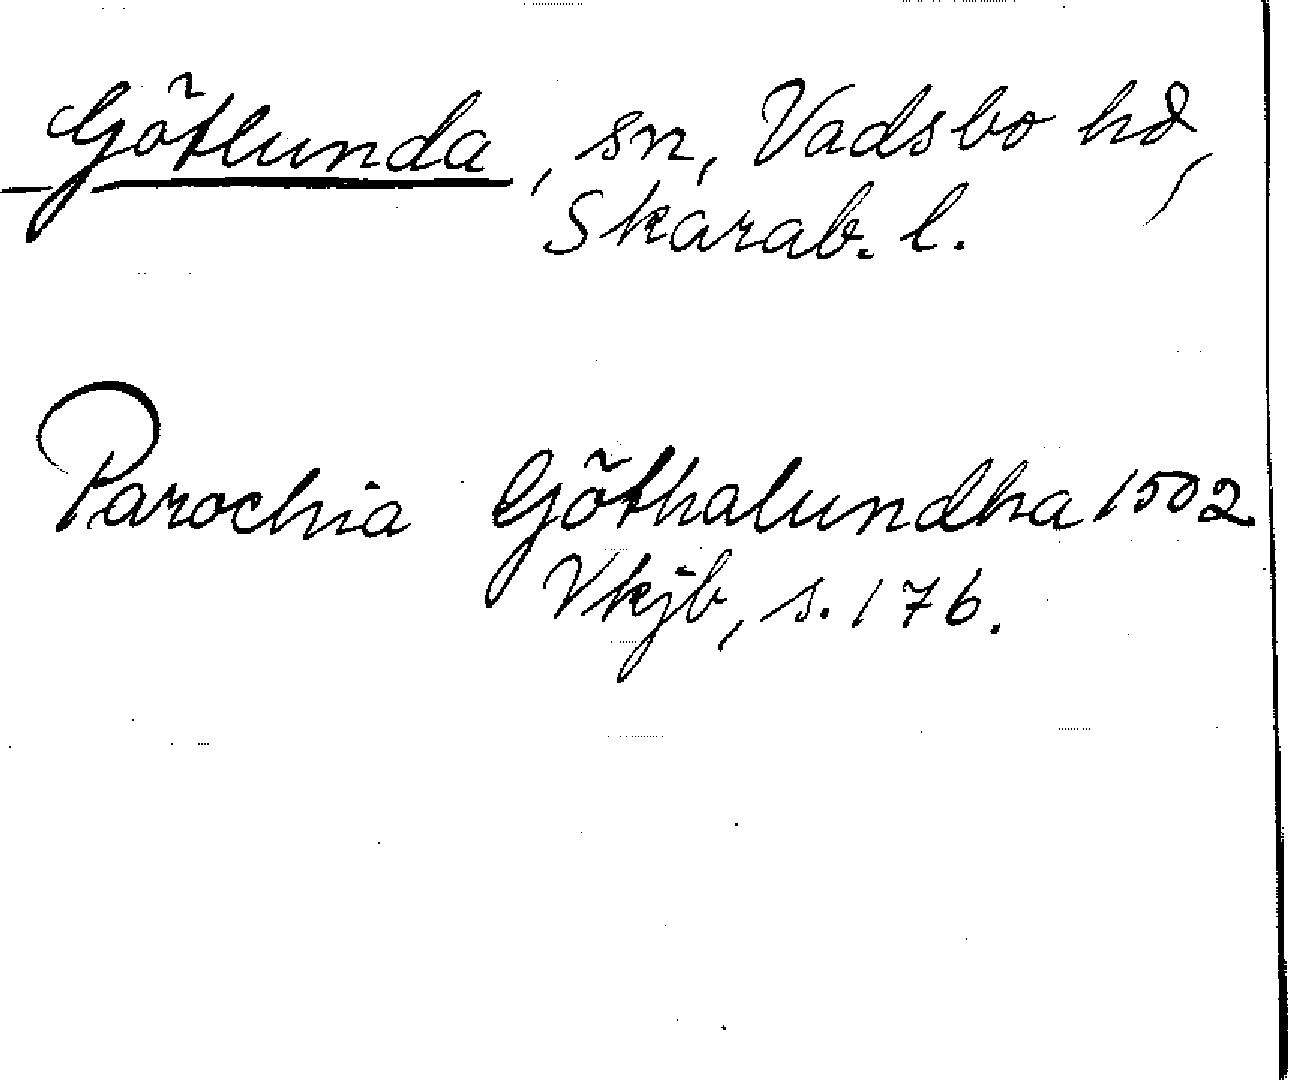 Götlunda, sn, Vadsbo hd,
Skarab. l.
Parochia Göthalundha 1502
Vkjb, s. 176.